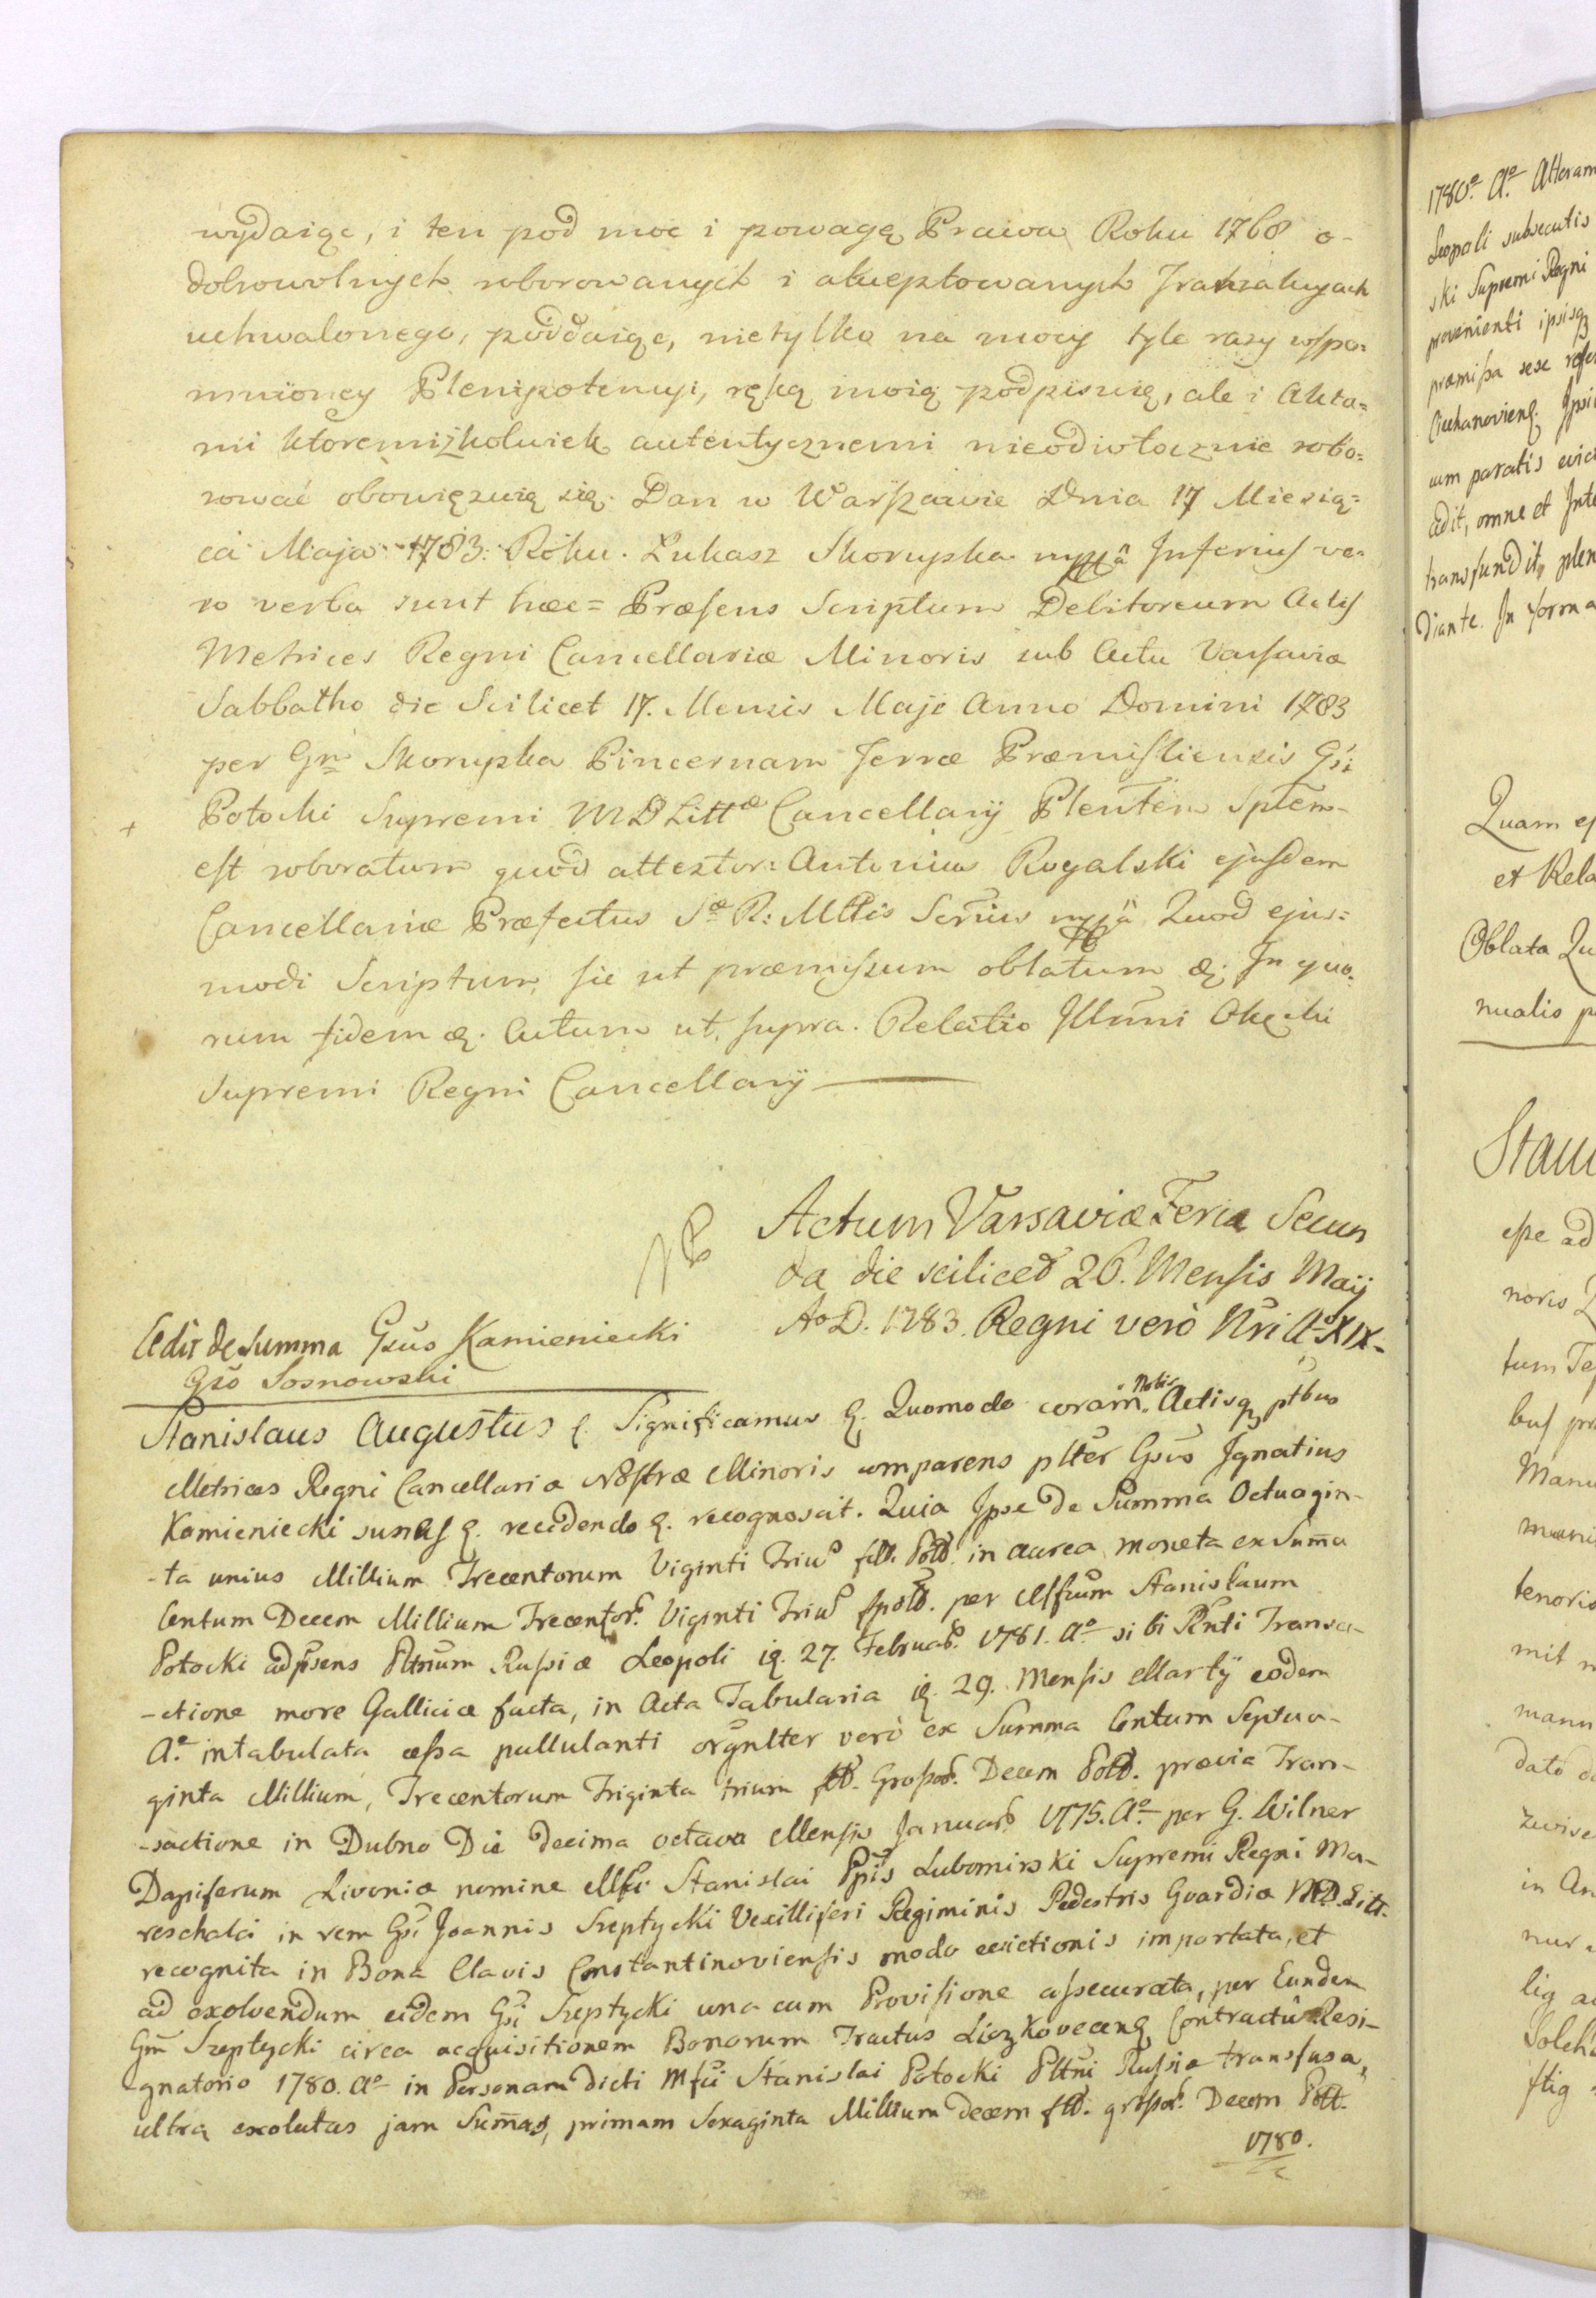 wydaiąc, i ten pod moc i powagę Prawa Roku 1768 o-
dobrowolnych roborowanych i akceptowanych Tranzakcyach
uchwalonego, poddaiąc, nietylko na mocy tyle razy wspo=
mnioney Plenipotencyi, ręką moią podpisuię, ale i Akta=
mi ktoremiżkolwiek autentycznemi nieodwłocznie robo=
rować obowięzuię się. Dan w Warszawie Dnia 17 Miesią=
ca Maja 1783: Roku. Łukasz Skorupka mppâ Inferius ve=
ro verba sunt hæc= Præsens Scriptum Debitoreum Actis
Metrices Regni Cancellariæ Minoris sub Actu Varsaviæ
Sabbatho die Scilicet 17. Mensis Maje Anno Domini 1783
per Gm Skorupka Pincernam Terræ Præmisliensis Gsi
+ Potocki Supremi MD Littæ Cancellarij Plentem Sptem-
est roboratum quod attestor: Antonius Rogalski ejusdem
Cancellariæ Præfectus Sæ R: Mttis Scrius mppâ Quod ejus=
modi Scriptum, sic ut præmissum oblatum &. In quo=
rum fidem &. Actum ut supra. Relatio Illmi Okęcki
Supremi Regni Cancellarij
Actum Varsaviæ Feria Secun
da die scilicet 26. Mensis Maij
Ao D. 1783. Regni verò Nri Ao XIX-
Cedit de Summa Gsus Kamieniecki
Gso Sosnowski
Stanislaus Augustus &. Significamus &. Quomodo coram Nobis Actisq ptbus
Metrices Regni Cancellariæ Nostræ Minoris comparens plter Gsus Ignatius
Kamieniecki sanus &. recedendo &. recognoscit. Quia Ipse de Summa Octuagin-
-ta unius Millium Trecentorum Viginti Trium fll. Poll. in aurea moneta ex Suma
Centum Decem Millium Trecentor. Viginti Trium fpoll. per Msfcum Stanislaum
Potocki adpsens Pltnum Russiæ Leopoli i&. 27. Februar. 1781. Ao si bi Pnti Transa-
-ctione more Galliciæ facta, in Acta Tabularia i&. 29. Mensis Martij eodem
Ao. intabulata cessa pullulanti orgnlter verò ex Summa Centum Septua-
ginta Millium, Trecentorum Triginta trium fll. Grossor. Decem Poll. prævia Tran-
-sactione in Dubno Die decima octava Mensis Januar. 1775. Ao per G. Wilner
Dapiferum Livoniæ nomine Msfci Stanislai Ppis Lubomirski Supremi Regni Ma-
reschalci in rem Gsi Joannis Szeptycki Vexilliferi Regiminis Pedestris Guardiæ M.D. Litt.
recognita in Bona Clavis Constantinoviensis modo evictionis importata, et
ad exolvendum eidem Gsi Szeptycki una cum Provisione assecurata, per Eundem
Gm Szeptycki circa acquisitionem Bonorum Tractus Liczkovecens Contractu Resi-
gnatorio 1780. Ao in Personam dicti Mfci Stanislai Potocki Pltni Russiæ transfusa,
ultra exolutas jam Sumas, primam Sexaginta Millium decem fll. grossor. Decem Poll.
1780.
1780o. Ao. Alteram
Leopoli subsecutis
ski Supremi Regni
provenienti ipsisq
præmissa sese
Ciechanoviens. Ipsi
um paratis
cedit, omne et
transfundit, plen
diante. In forma
Quam
et Rela
Oblata
nualis
Stani
esse ad
noris
tum
bus
Manu
tenoris
mit
mann
dato
zwise
in An
nur
lig
Solch
stig